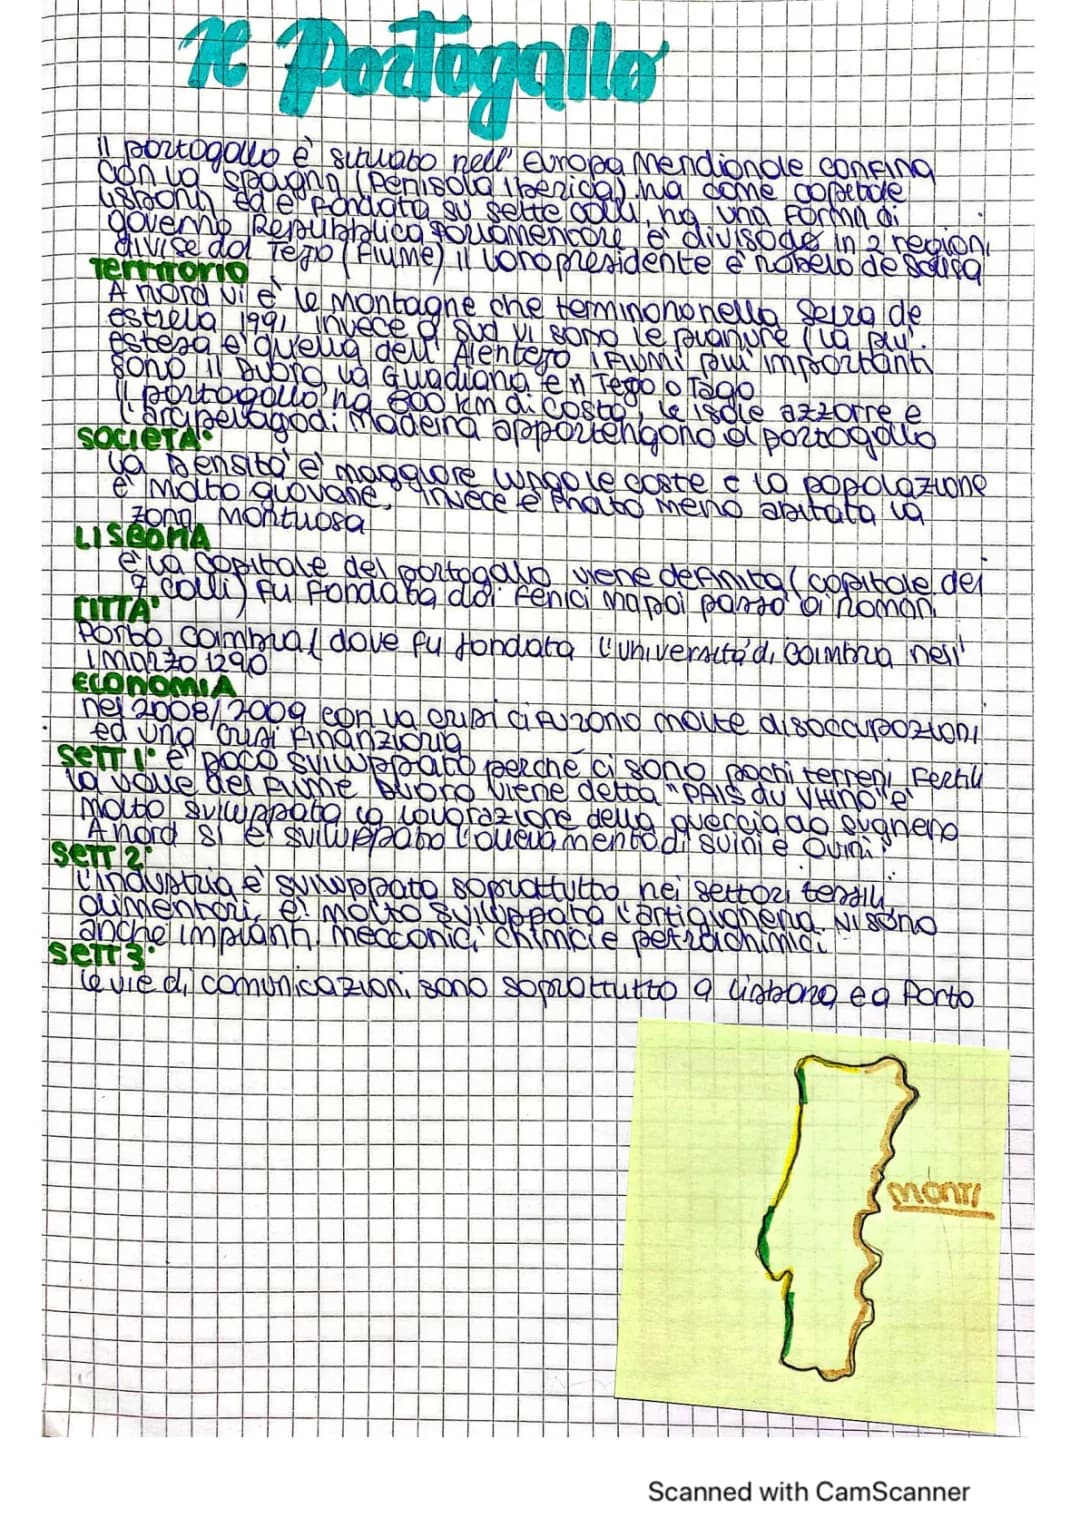 Il Portogallo
Il portogallo è situato nell' Europa Meridionale confina
con la spagna (Penisola Iberica) ha come capitale
Lisbona ed è fondata su sette colli, ha una forma di
governo Repubblica parlamentare è divisa in 2 regioni
divise dal Tejo (fiume) il loro presidente è rabelo de sousa
Territorio
A nord vi è le montagne che terminano nella Serra de
estrela 1991 invece a sud vi sono le pianure (la più
estesa è quella dell' Alentejo i fiumi più importanti
sono il Duoro la Guadiana e il Tejo o Tago
Il portogallo ha 800 km di costa, le isole azzorre e
l'arcipelago di Madeira appartengono al portogallo
SOCIETA'
la Densità è maggiore lungo le coste e la popolazione
è molto giovane, invece è molto meno abitata la
zona montuosa
LISBONA
è la capitale del portogallo viene definita (capitale dei
7 colli) fu fondata dai fenici ma poi passò ai romani
CITTA'
Porto coimbra (dove fu fondata l'università di coimbra nell'
1 marzo 1290
ECONOMIA
nel 2008/2009 con la crisi ci furono molte disoccupazioni
ed una crisi finanziaria
SETT 1° è poco sviluppato perchè ci sono pochi terreni fertili
la valle del fiume Duoro viene detta "PAIS du VHINO" è
molto sviluppata la lavorazione della quercia da sughero
A nord si è sviluppato l'allevamento di suini e ovini.
SETT 2°
L'industria è sviluppata soprattutto nei settori tessili
alimentari, è molto sviluppata l'artigianeria. Vi sono
anche impianti meccanici chimici e petrolchimici.
SETT 3°
le vie di comunicazioni sono soprattutto a Lisbona e a Porto
MONTI
Scanned with CamScanner